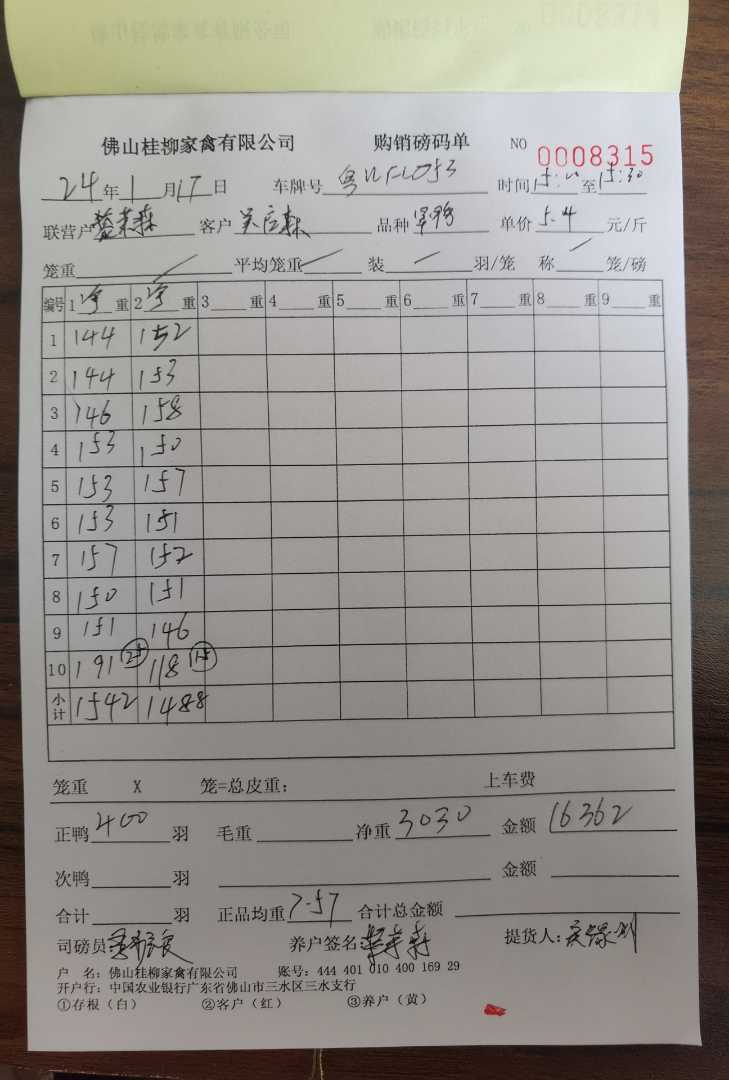 佛山桂柳家禽有限公司 购销磅码单 NO 0008315
24年1月17日 车牌号 时间 至15:30
联营户 客户 品种 单价5.4元/斤
笼重 平均笼重 装 羽/笼 称 笼/磅
编号 1 重 2 重 3 重 4 重 5 重 6 重 7 重 8 重 9 重
1 144 152
2 144 153
3 146 158
4 153 150
5 153 157
6 153 151
7 157 152
8 150 151
9 151 146
10 191 118
小计 1542 1488
笼重 X 笼=总皮重: 上车费
正鸭400羽 毛重 净重3030 金额16362
次鸭 羽 金额
合计 羽 正品均重7.57 合计总金额
司磅员 养户签名: 提货人:
户 名:佛山桂柳家禽有限公司 账号:444 401 010 400 169 29
开户行:中国农业银行广东省佛山市三水区三水支行
①存根(白) ②客户(红) ③养户(黄)